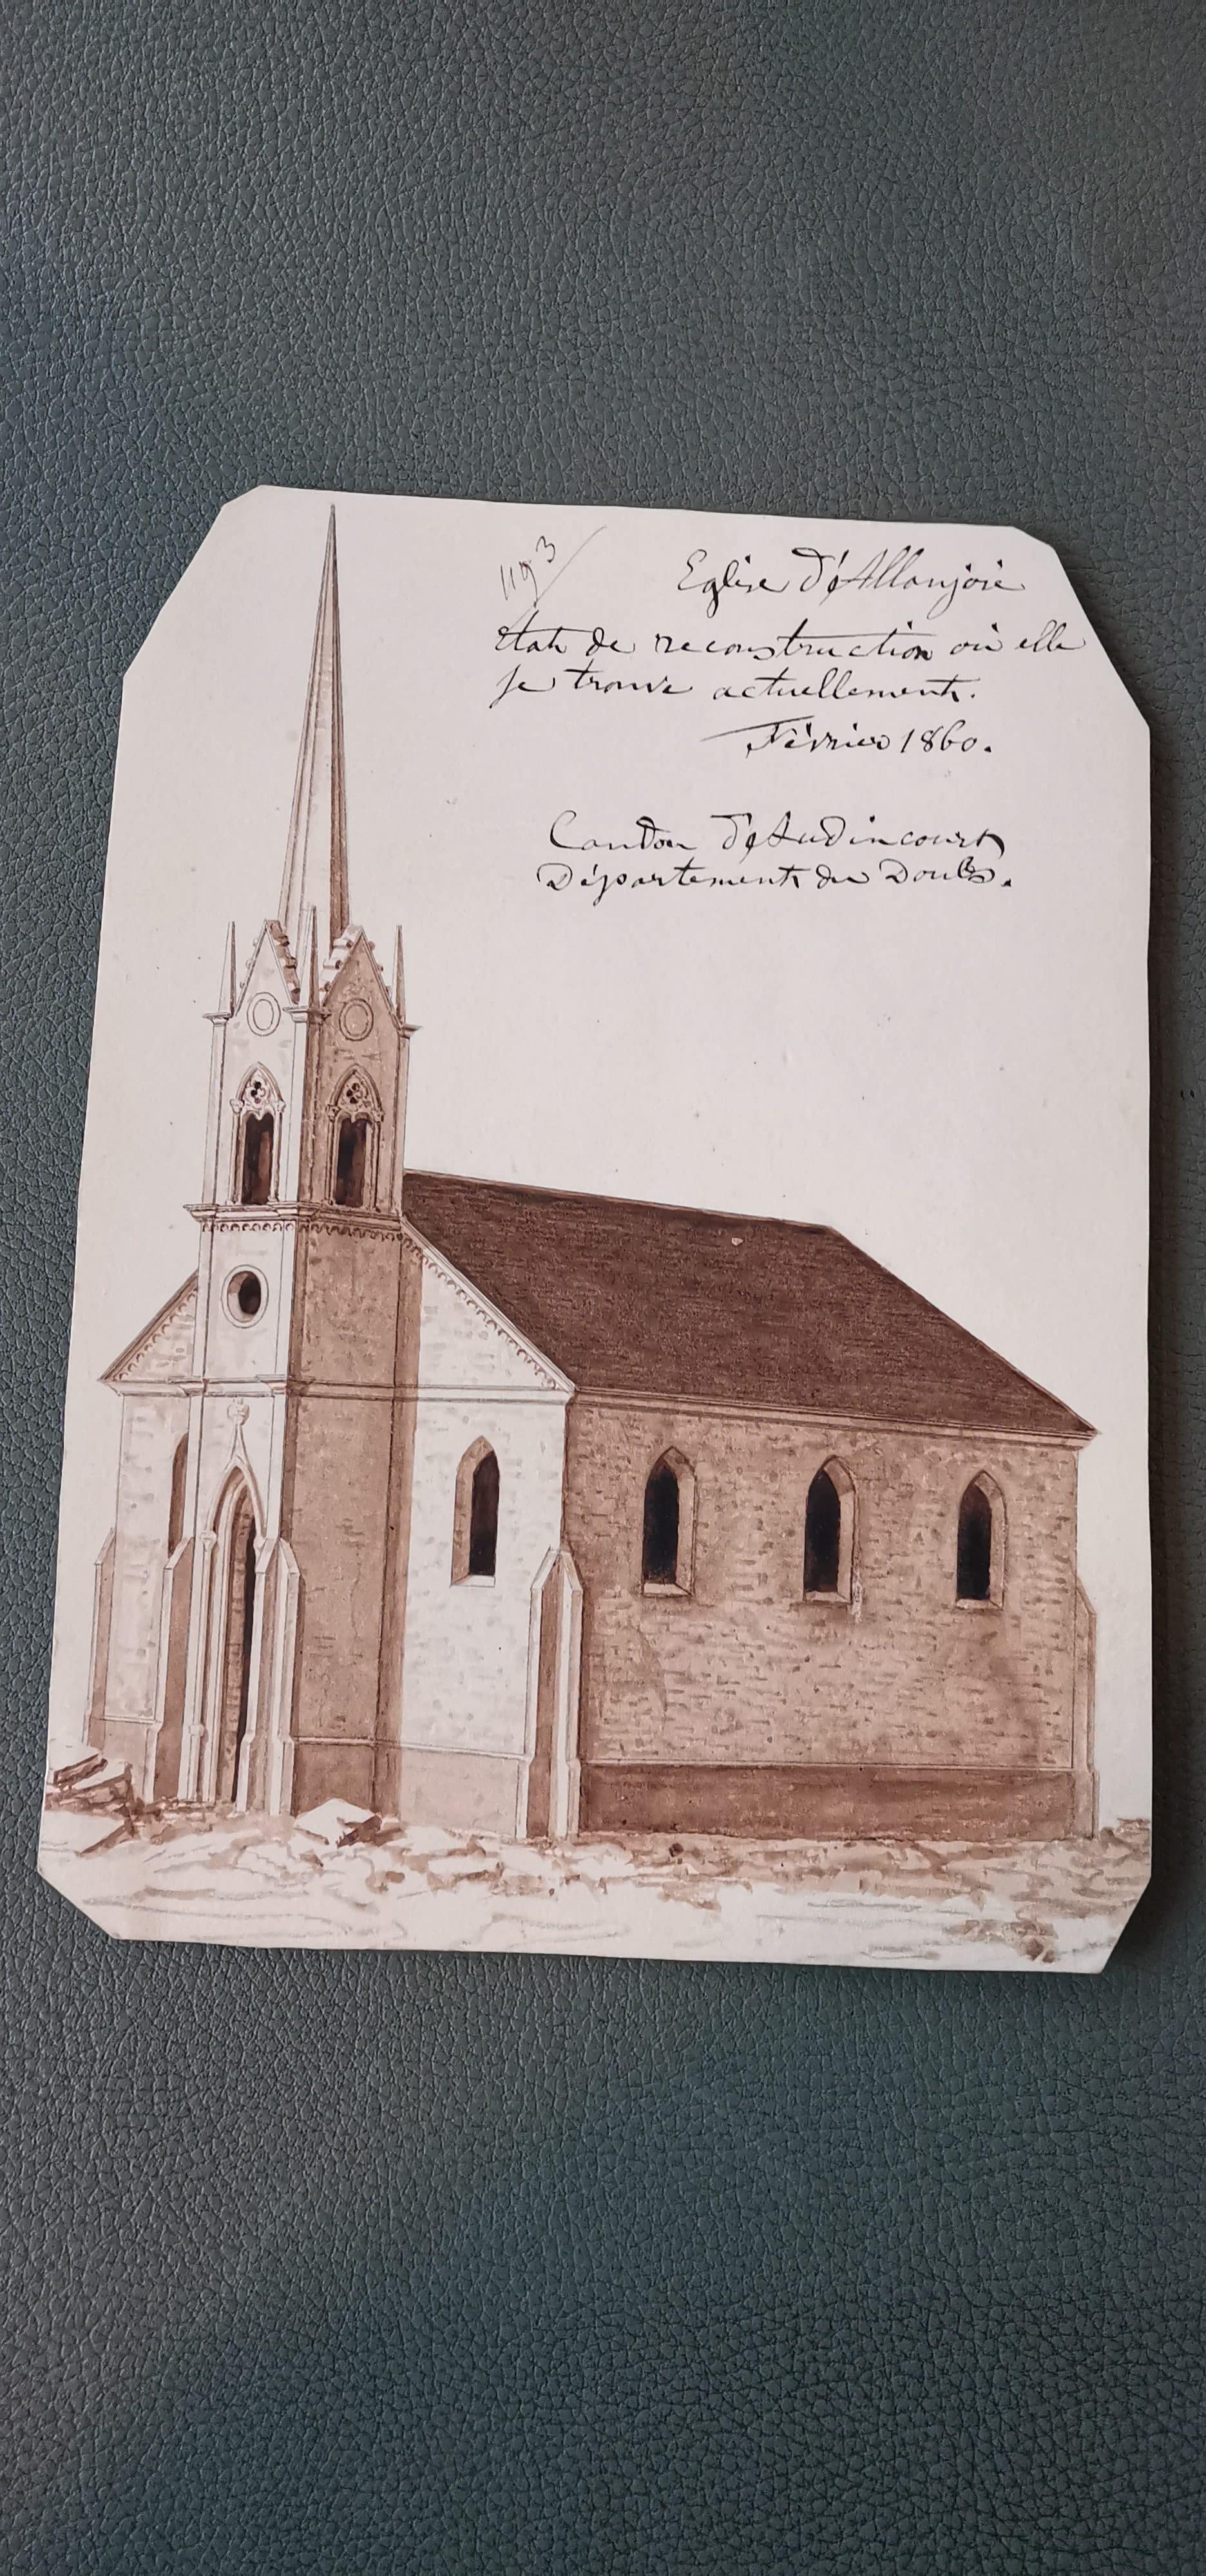 1193
Eglise d'Allanjoie
Etat de reconstruction où elle
se trouve actuellement.
Février 1860.
Canton d'Audincourt
Département du Doubs.